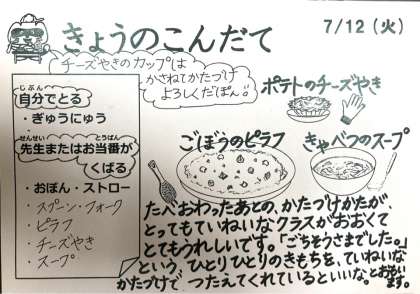 きょうのこんだて
7/12（火）
チーズやきのカップは
かさねてかたづけ
よろしくだぽん。
ポテトのチーズやき
じぶん
自分でとる
・ぎゅうにゅう
せんせい とうばん
先生またはお当番が
くばる
・おぼん・ストロー
・スプーン・フォーク
・ピラフ
・チーズやき
・スープ
ごぼうのピラフ
きゃべつのスープ
たべおわったあとの、かたづけかたが
とってもていねいなクラスがおおくて
とてもうれしいです。「ごちそうさまでした。」
という、ひとりひとりのきもちを、ていねいな
かたづけで、つたえてくれているといいなとおもいます。